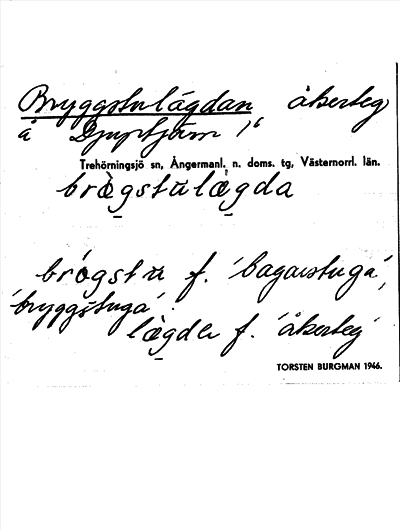 Bryggstulägdan åkerteg
å Djuptjärn 1⁶
Trehörningsjö sn, Ångermanl. n. doms. tg, Västernorrl. län.
brøgstulęgda
brøgstu f. 'bagarstuga',
'bryggstuga'.
lęgde f. 'åkerteg'
TORSTEN BURGMAN 1946.